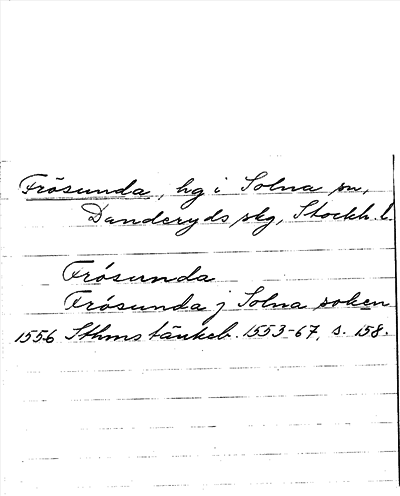 Frösunda, hg i Solna sn,
Danderyds skg, Stockh. l.
Frósunda
Frósunda j Solna soken
1556 Sthms tänkeb. 1553-67, s. 158.